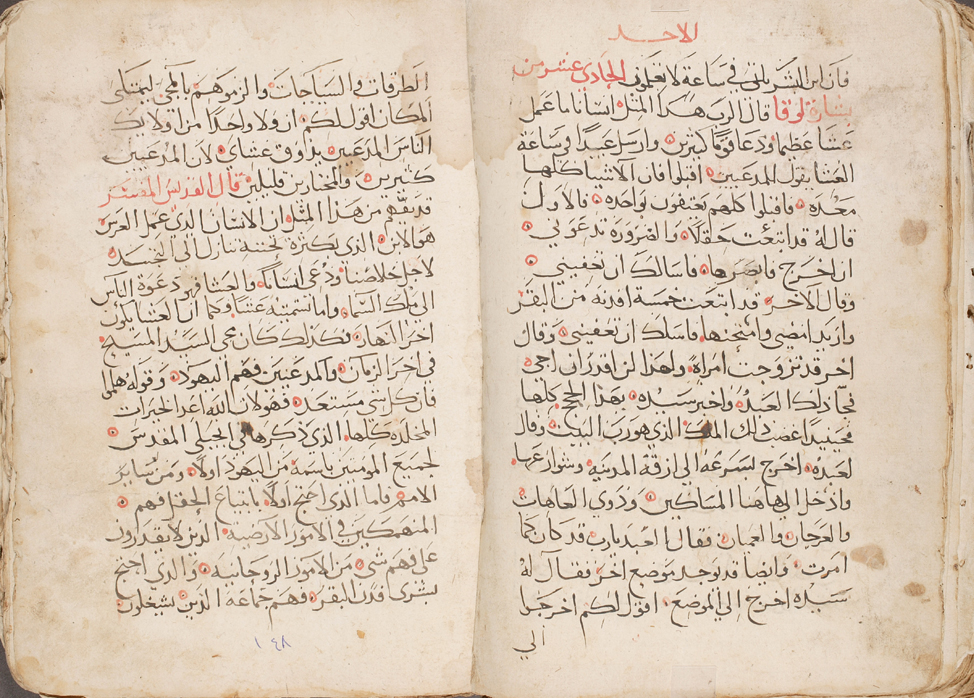 الاحد
فان ابن البشر ياتي في ساعة لا تعلموني الحادي عشر من
بشارة لوقا قال الرب هذا المثل انسانا ما عمل
عشا عظيما ودعا قوما كثيرين وارسل عبدا في ساعة
العشا يقول للمدعيين اقبلوا فان الاشيا كلها
معده فاقبلوا كلهم يعتفون بواحده فالاول
قال له قد ابتعت حقلا والضرورة تدعوني
ان اخرج فانضرها فاسالك ان تعفيني
وقال الاخر قد ابتعت خمسة افدنه من البقر
واريد امضي وامتحنها فاسلك ان تعفيني وقال
اخر قد تزوجت امراة ولهذا لن اقدر ان اجي
فجا ذلك العبد واخبر سيده بهذا الحجج كلها
فحينيدا غضب ذلك الملك الذي هو رب البيت وقال
لعبده اخرج بسرعه الى ازقة المدينه وشوارعها
وادخل الى هاهنا المساكين وذوي العاهات
والعرجان والعميان فقال العبد يارب قد كان كما
امرت وايضا قد توجد موضع اخر فقال له
سيده اخرج الى الموضع اقول لكم اخرجوا
الي
الطرقات والسياجات والزموهم بالمجي ليمتلي
المكان اقول لكم ان ولا واحدا من اولايك
الناس المدعيين يذاوق عشاي لان المدعيين
كثيرين والمختارين قليلين قال القديس المفسر
قد نفهم من هذا المثل ان الانسان الذي عمل العرس
هو الابن الذي بكثرة تحننه تنازل الى التجسد
لاجل خلاصنا ودعى انسانا والعشا فهو دعوة الناس
الى ملك السما واما تسميته عشا فكما ان العشا يكون
اخر النهار فكذلك كان مجي السيد المسيح
في اخر الزمان والمدعيين فهم اليهود وقوله هلموا
فان كل شي مستعد فهو لان الله اعد الخيرات
المخلده كلها الذي ذكرها في الانجيل المقدس
لجميع المومنين باسمه من اليهود اولا ومن ساير
الامم فاما الذي احتج اولا بابتياع الحقل فهم
المنهمكين في الامور الارضيه الذين لا يقدرون
على فهم شي من الامور الروحانيه والذي احتج
بشرى فدن البقر فهم جماعة الذين يشغلون
١٤٨